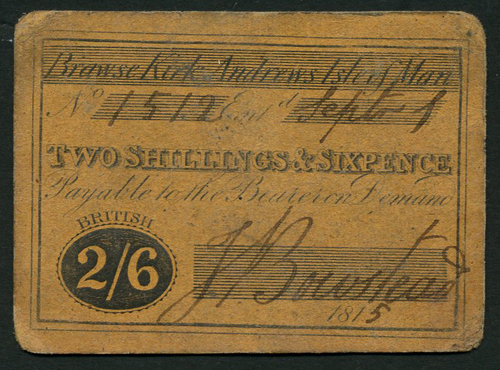 Brawse Kirk Andrews Isle of Man
No 1512 Entd Septr 1
TWO SHILLINGS & SIXPENCE
Payable to the Bearer on Demand
BRITISH
2/6
J. Bowstead
1815